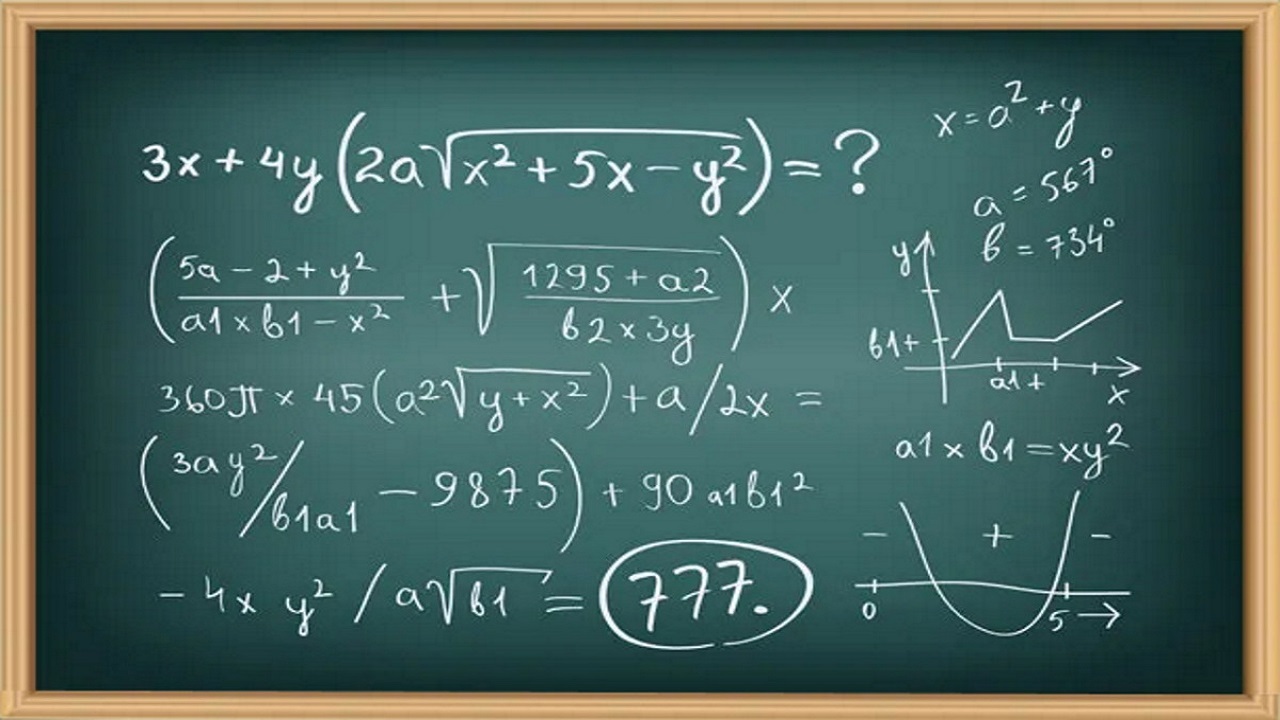 3x + 4y (2a√x² + 5x − y²) = ?
(5a − 2 + y² / a1 × b1 − x² + √1295 + a2 / b2 × 3y) x
360π × 45 (a2√y + x²) + a/2x =
(3ay²/b1a1 − 9875) + 90 a1b1²
− 4x y² / a√b1 = 777.
x = a² + y
a = 567°
b = 734°
y
b1+
a1+
x
a1 × b1 = xy²
− + −
0 5 →